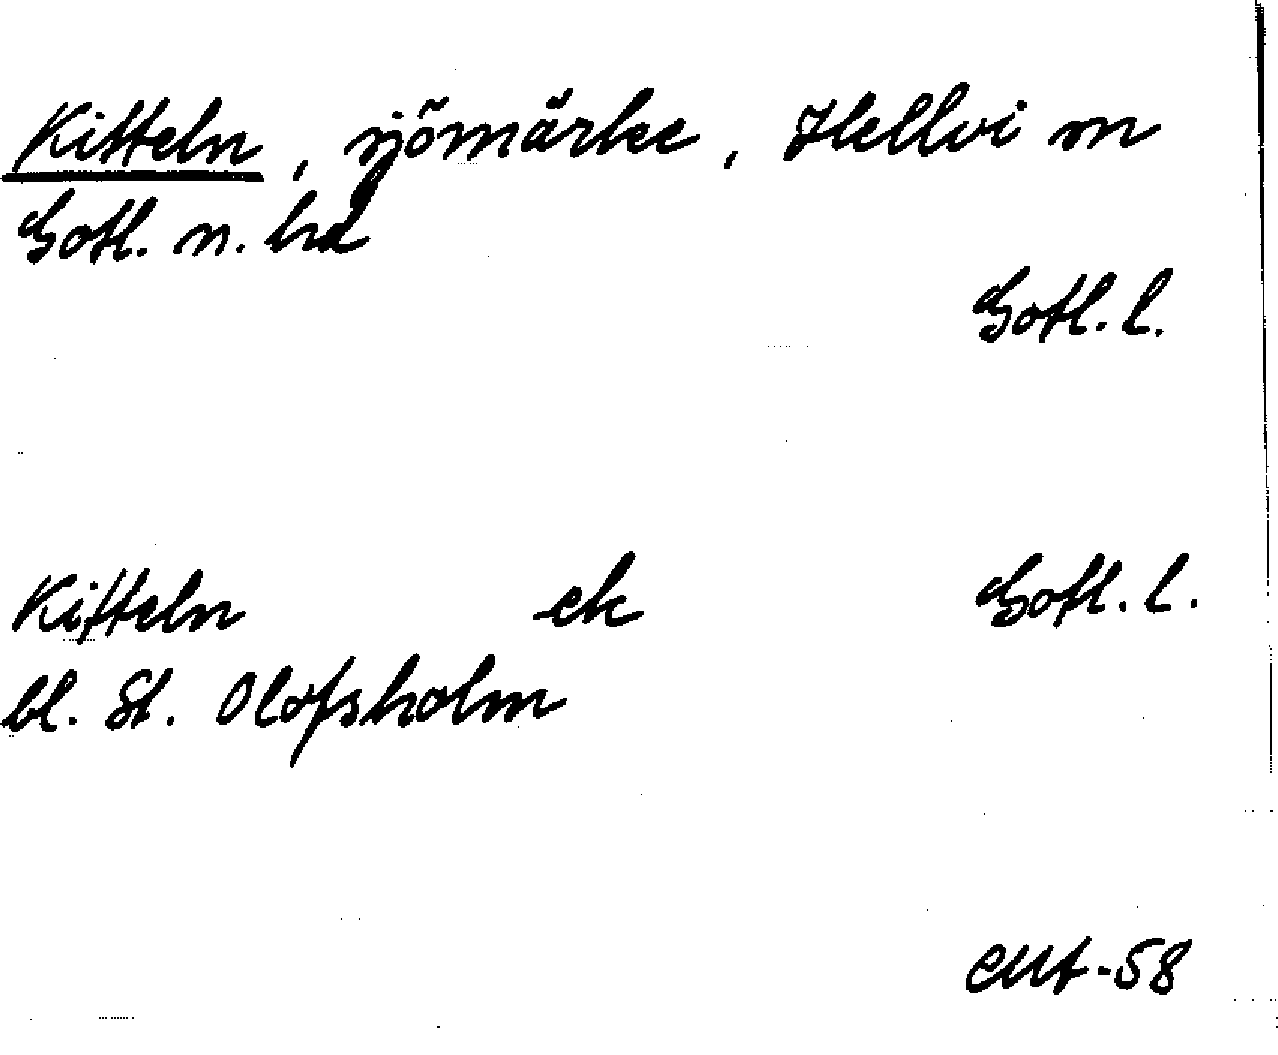 Kitteln, sjömärke, Hellvi sn
Gotl. n. hd
Gotl. l.
Kitteln ek Gotl. l.
bl. St. Olofsholm
-58